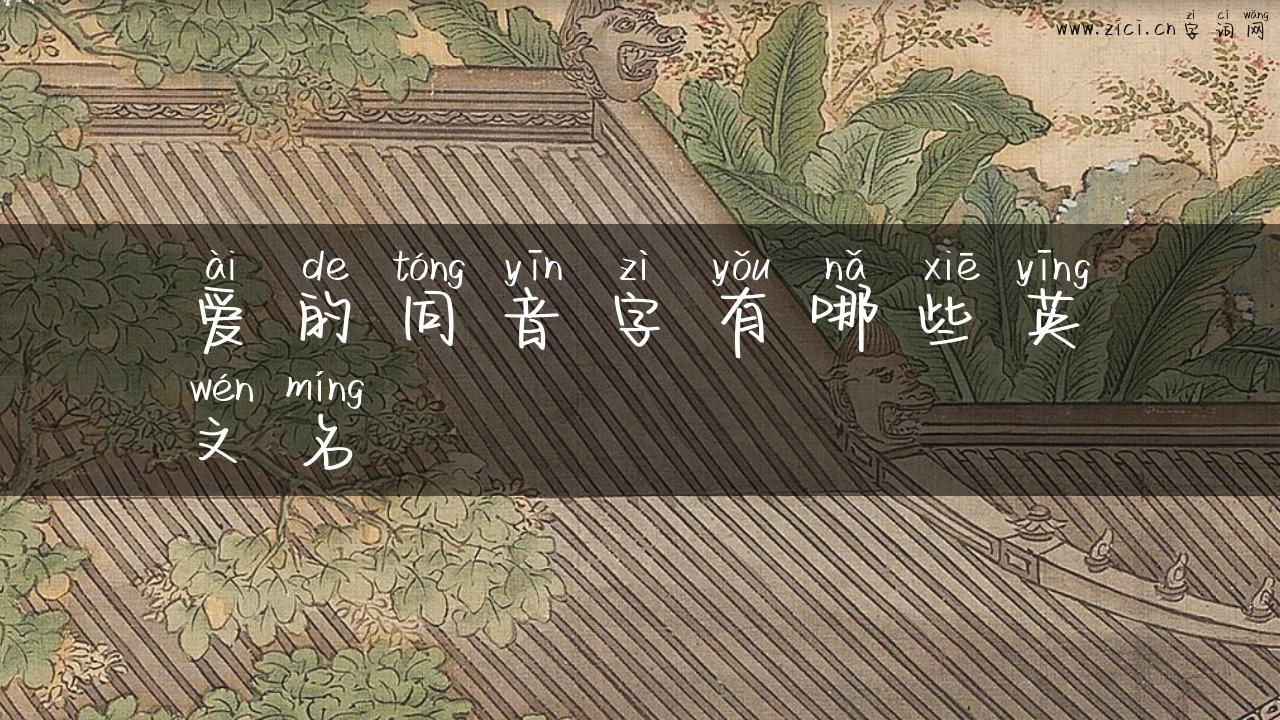 zì cí wǎng
www.zici.cn 字 词 网
ài de tóng yīn zì yǒu nǎ xiē yīng
爱 的 同 音 字 有 哪 些 英
wén míng
文 名